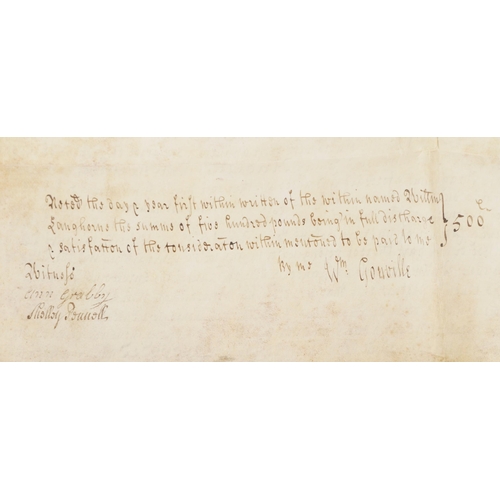 Rec̃ed the day & year first within written of the within named Willm̃
Langhorne the summe of five hundred pounds being in full discharge } 500 £
& satisfac̃on of the considerac̃on within menc̃oned to be paid to me
By me Wm Gonville
Witness
Ann
Shelley Pennell